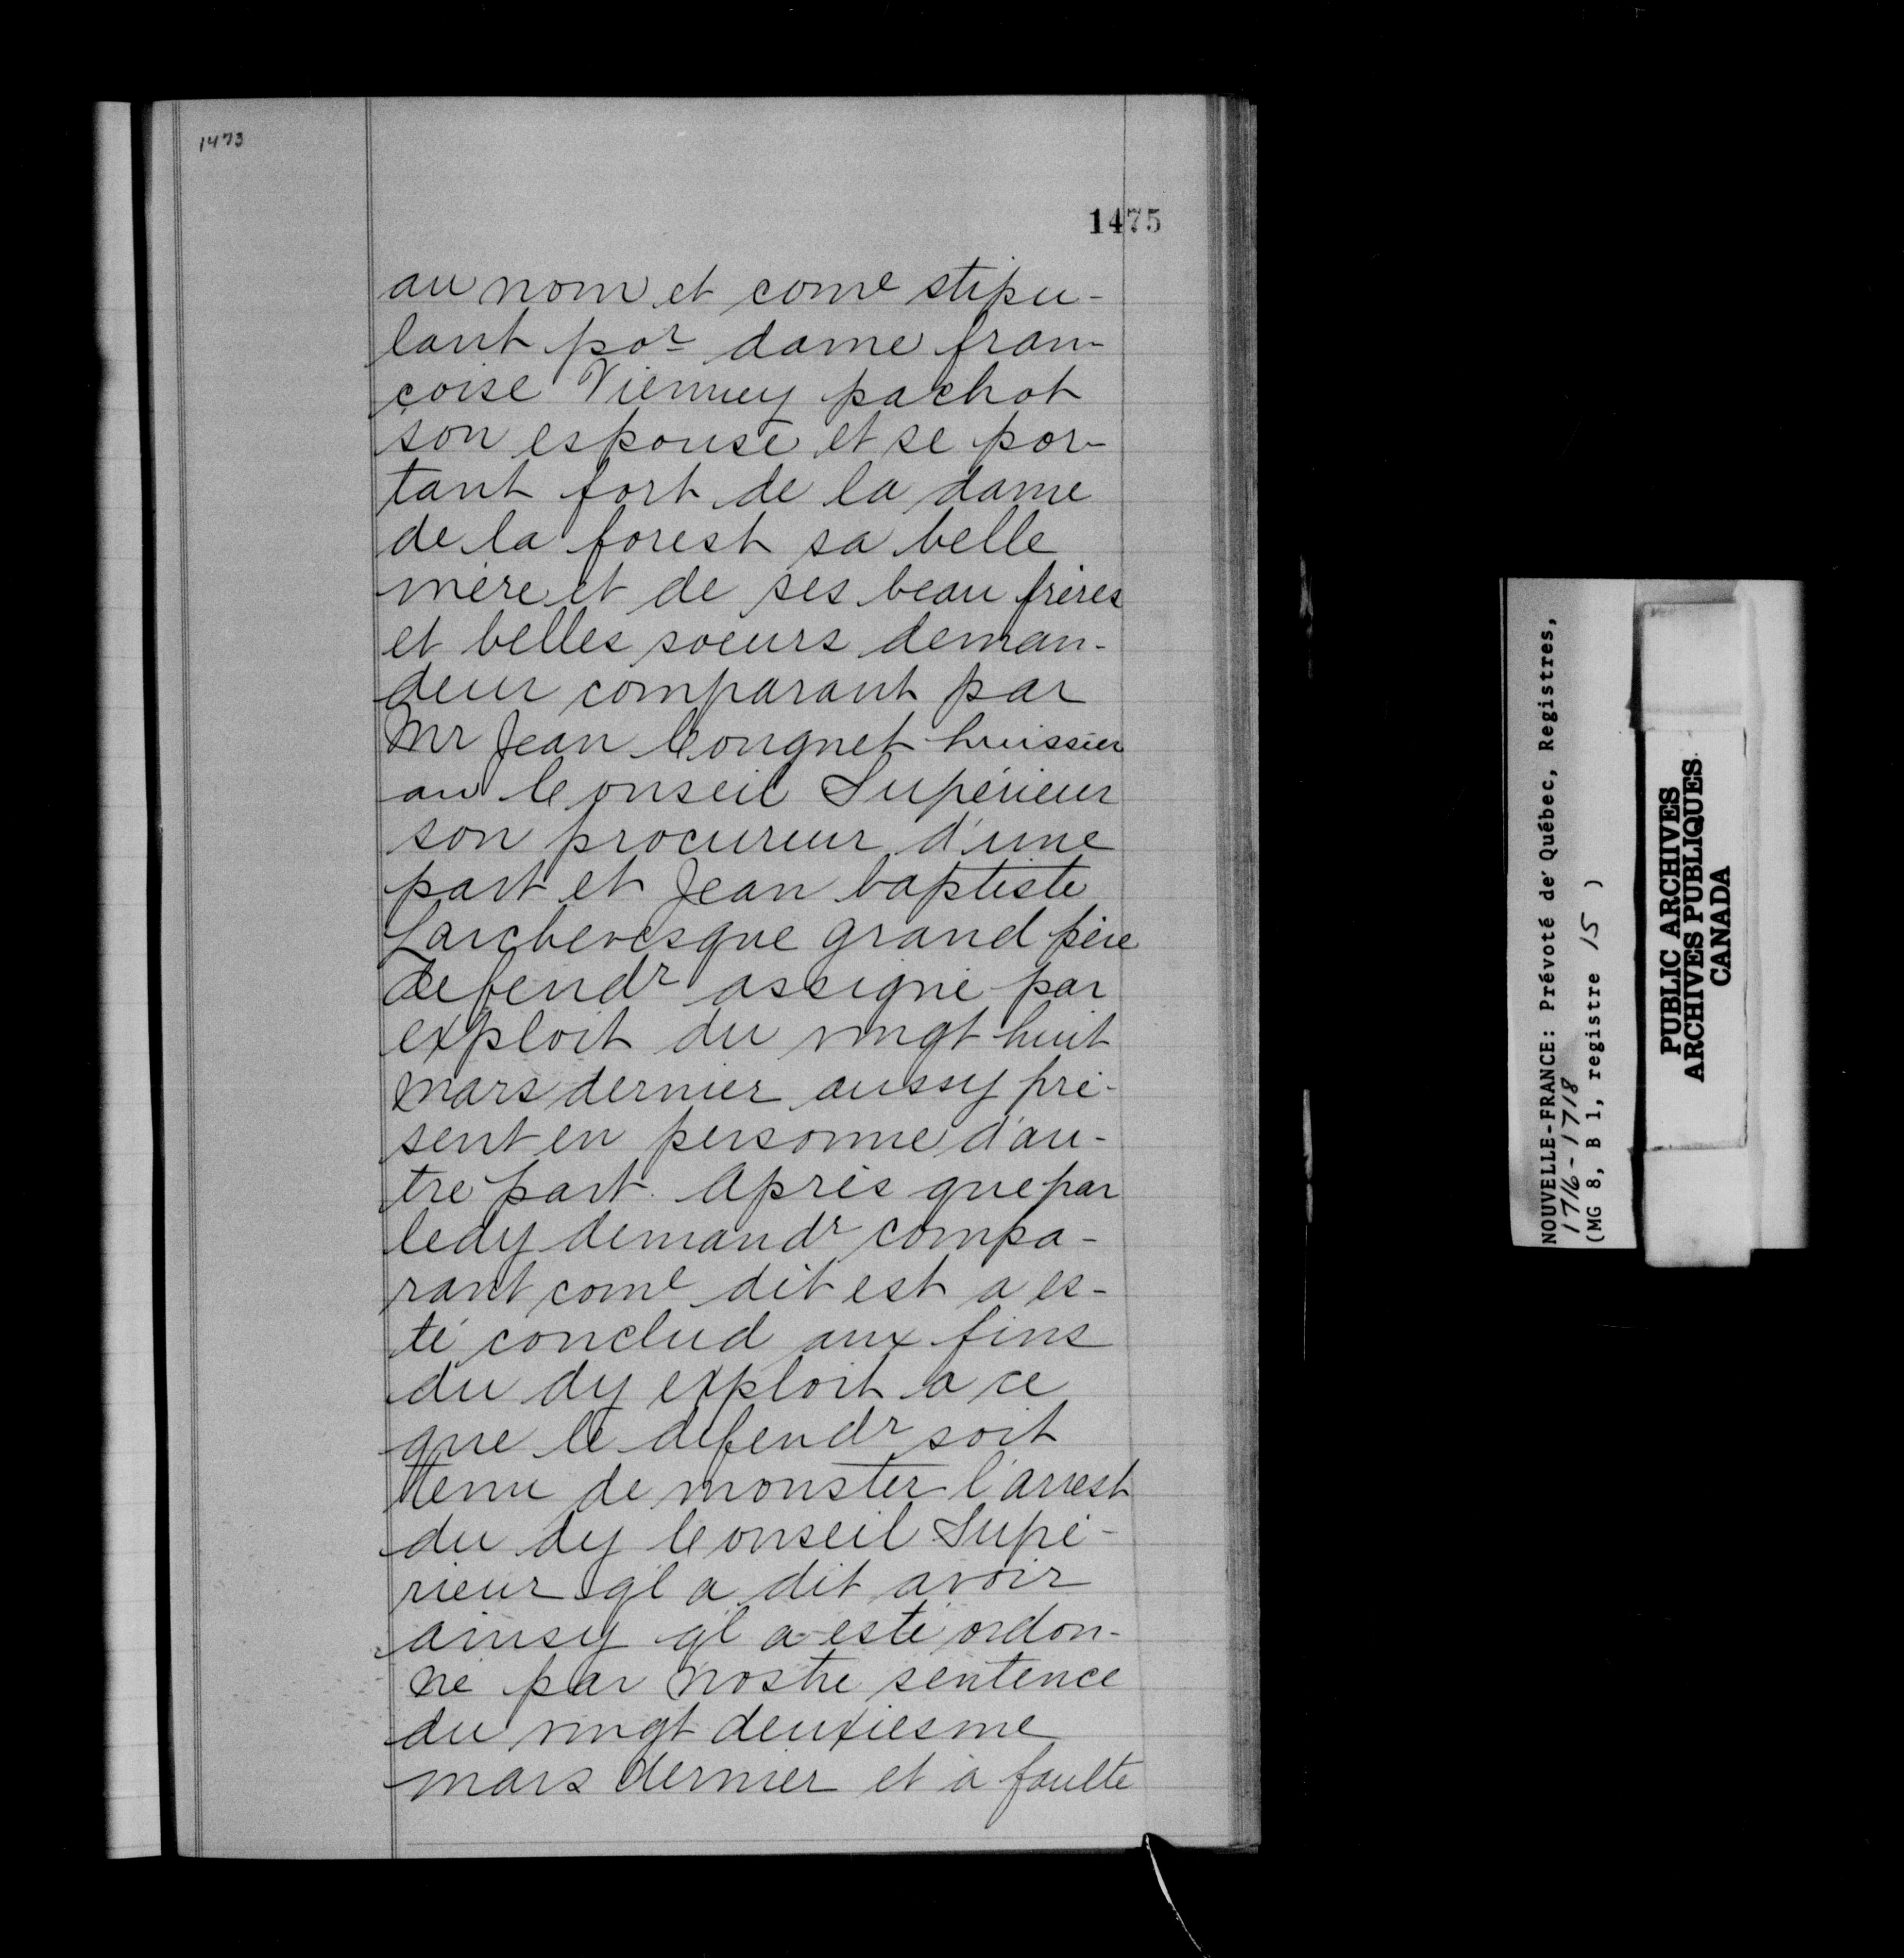 1473
1475
au nom et come stipu-
lant por dame fran-
çoise Vienney pachot
son espouse et se por-
tant fort de la dame
de la forest sa belle
mère et de ses beau frères
et belles soeurs deman-
deur comparant par
Mr Jean Congnet huissier
au Conseil Supérieur
son procureur d'une
part et Jean baptiste
Larchevesque grand père
defendr assigné par
exploit du vingt huit
mars dernier aussy pré-
sent en personne d'au-
tre part. Après que par
ledy demandr compa-
rant come dit est a es-
té conclud aux fins
du dy exploit a ce
que le defendr soit
tenu de monster l'arrest
du dy Conseil Supé-
rieur ql a dit avoir
ainsy ql a esté ordon-
né par nostre sentence
du vingt deuxiesme
mars dernier et à faulte
NOUVELLE-FRANCE: Prévoté de Québec, Registres,
1716-1718
(MG 8, B 1, registre 15 )
PUBLIC ARCHIVES
ARCHIVES PUBLIQUES
CANADA